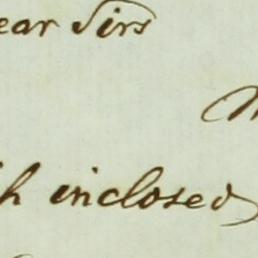 ear Sirs
h inclosed